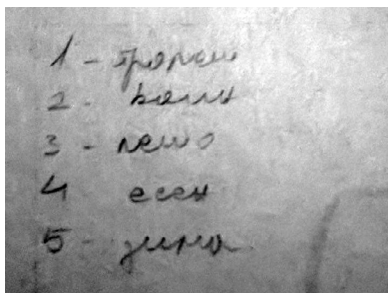 1 - пролет
2 -
3 - лето
4 есен
5 - зима